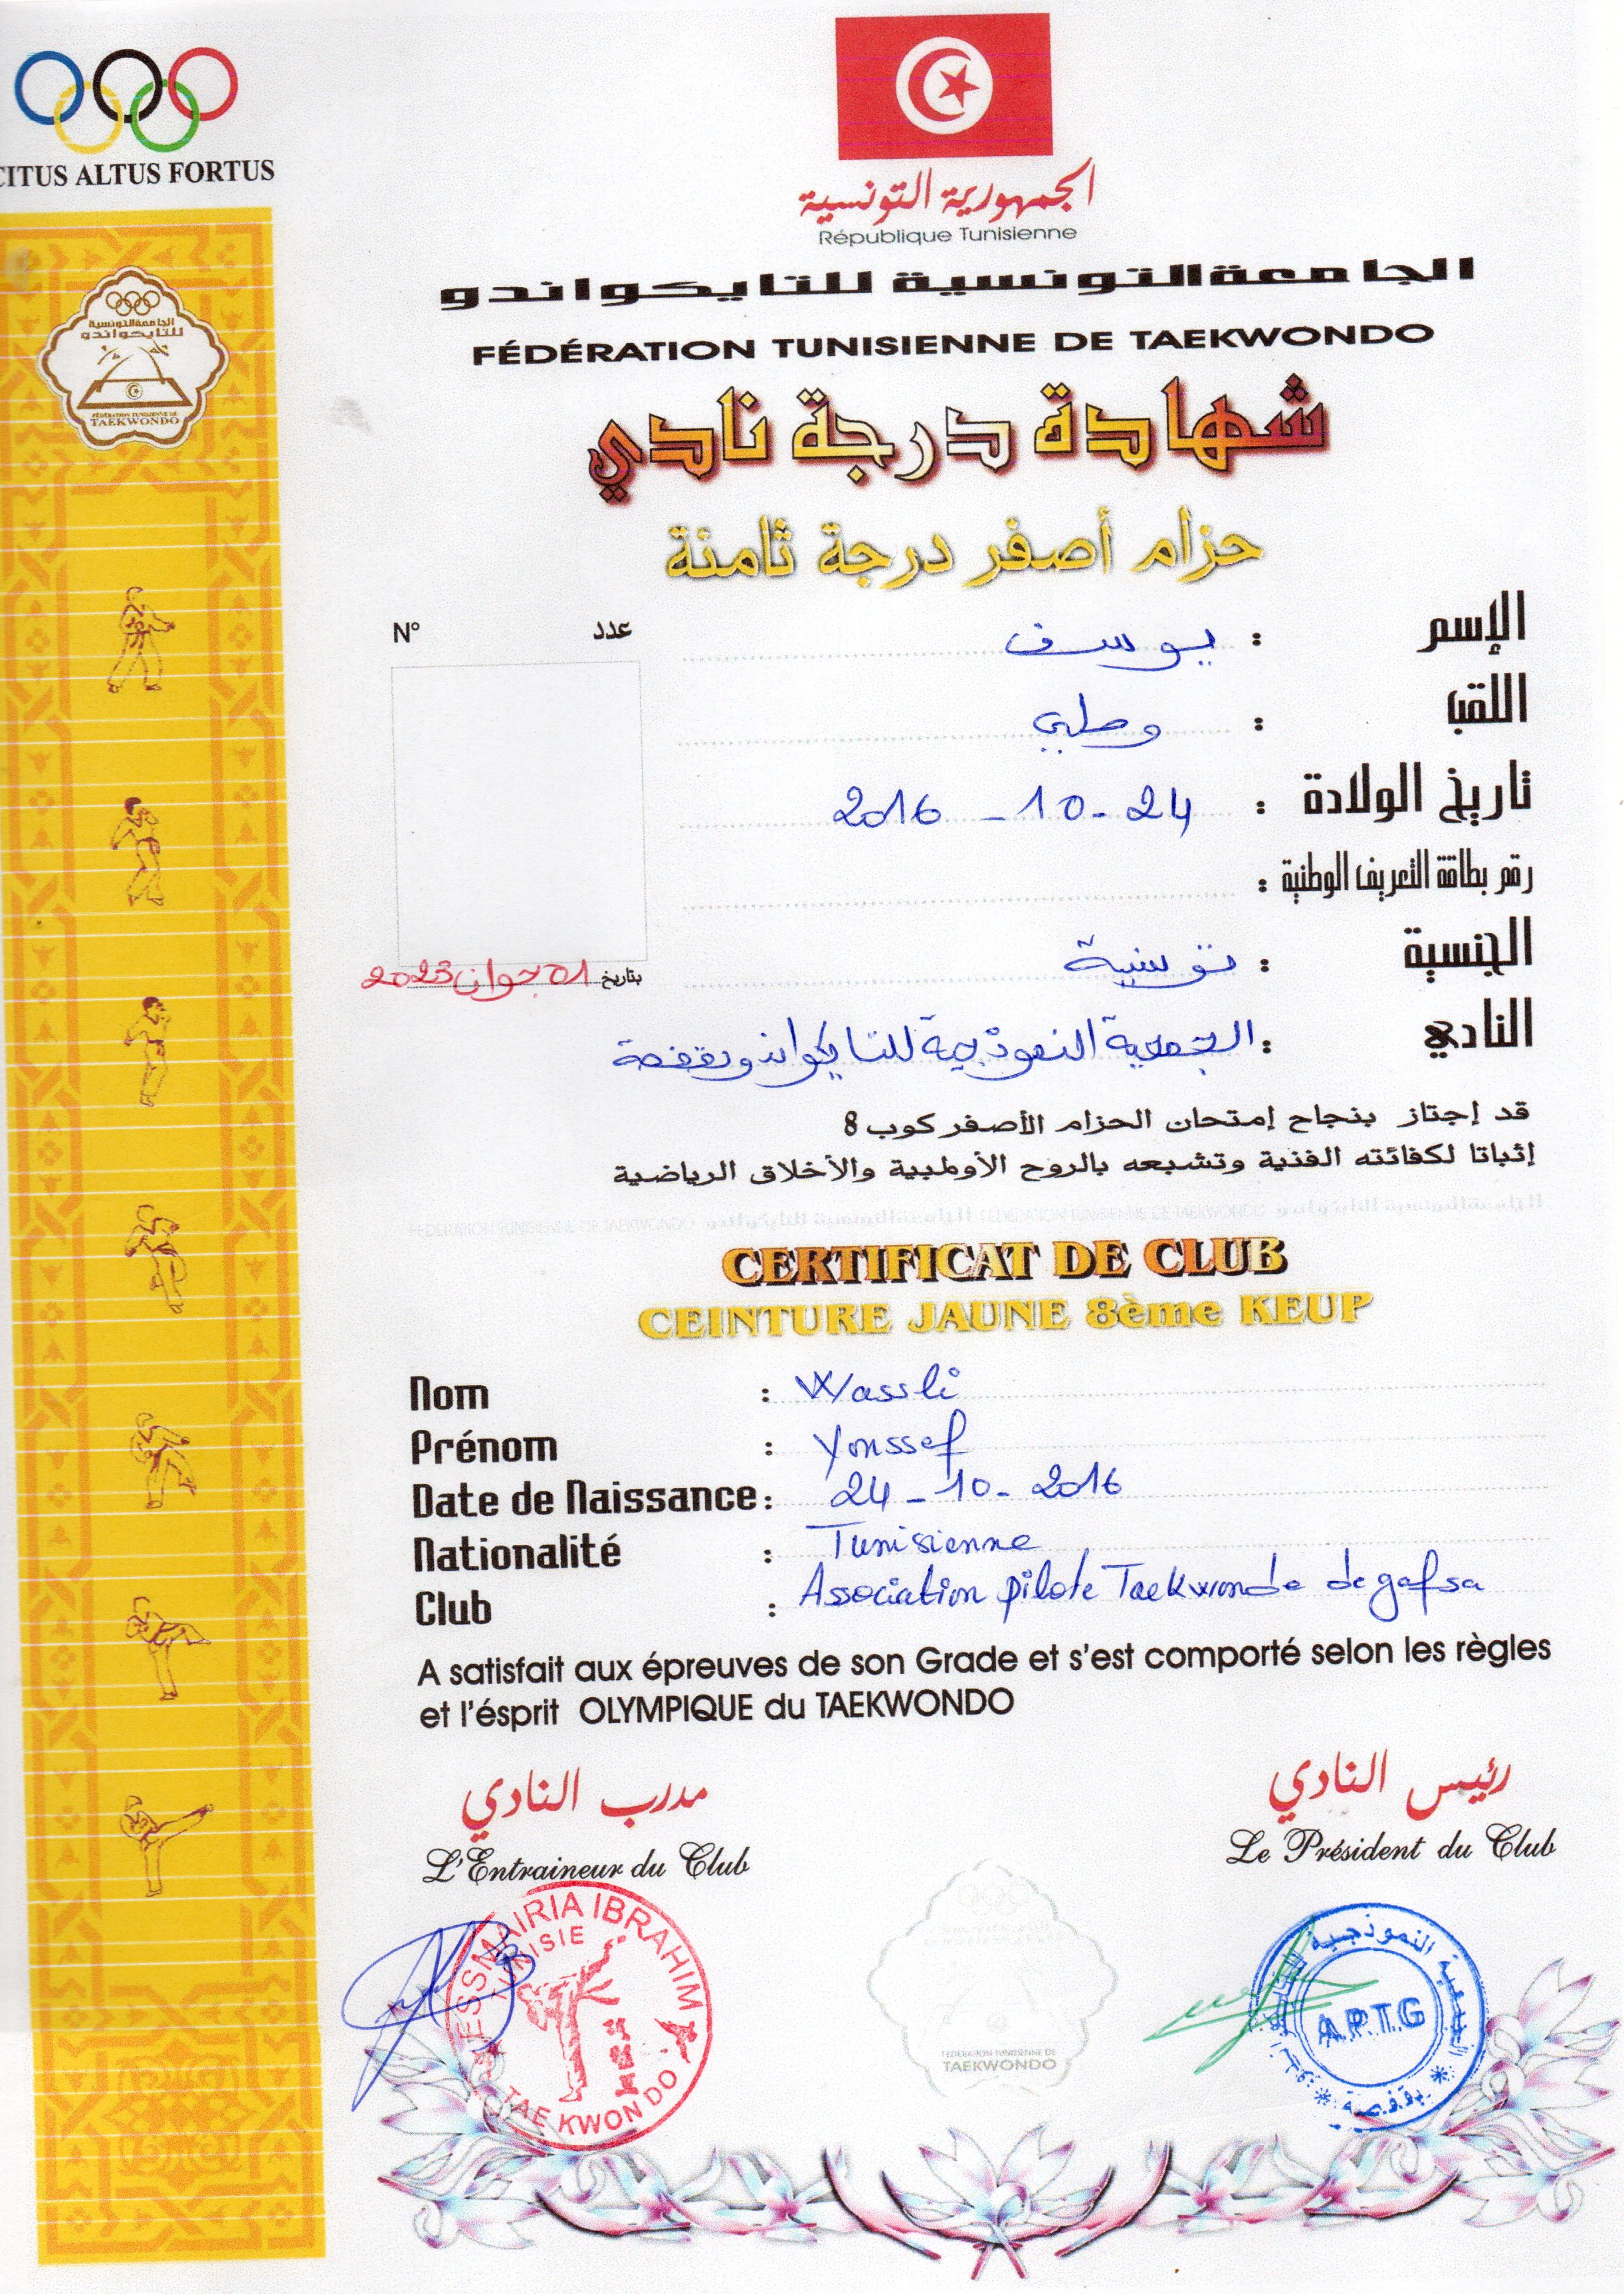 CITUS ALTUS FORTUS
الجامعة التونسية
للتايكواندو
FÉDÉRATION TUNISIENNE DE
TAEKWONDO
الجمهورية التونسية
République Tunisienne
الجامعة التونسية للتايكواندو
FÉDÉRATION TUNISIENNE DE TAEKWONDO
شهادة درجة نادي
حزام أصفر درجة ثامنة
الإسم : يوسف
اللقب : وصلي
تاريخ الولادة : 24-10-2016
رقم بطاقة التعريف الوطنية :
الجنسية : تونسية
النادي : الجمعية النموذجية للتايكواندو بقفصة
N° عدد
بتاريخ 01 جوان 2023
قد إجتاز بنجاح إمتحان الحزام الأصفر كوب 8
إثباتا لكفائته الفنية وتشبعه بالروح الأولمبية والأخلاق الرياضية
FEDERATION TUNISIENNE DE TAEKWONDO الجامعة التونسية للتايكواندو FEDERATION TUNISIENNE DE TAEKWONDO الجامعة التونسية للتايكواندو
CERTIFICAT DE CLUB
CEINTURE JAUNE 8ème KEUP
Nom : Wassli
Prénom : Youssef
Date de Naissance : 24-10-2016
Nationalité : Tunisienne
Club : Association pilote Taekwondo de gafsa
A satisfait aux épreuves de son Grade et s'est comporté selon les règles
et l'ésprit OLYMPIQUE du TAEKWONDO
مدرب النادي
L'Entraineur du Club
رئيس النادي
Le Président du Club
ESSMAIRIA IBRAHIM
TUNISIE
TAE KWON DO
FÉDÉRATION TUNISIENNE DE
TAEKWONDO
الجمعية النموذجية للتايكواندو
A.P.T.G
بقفصة